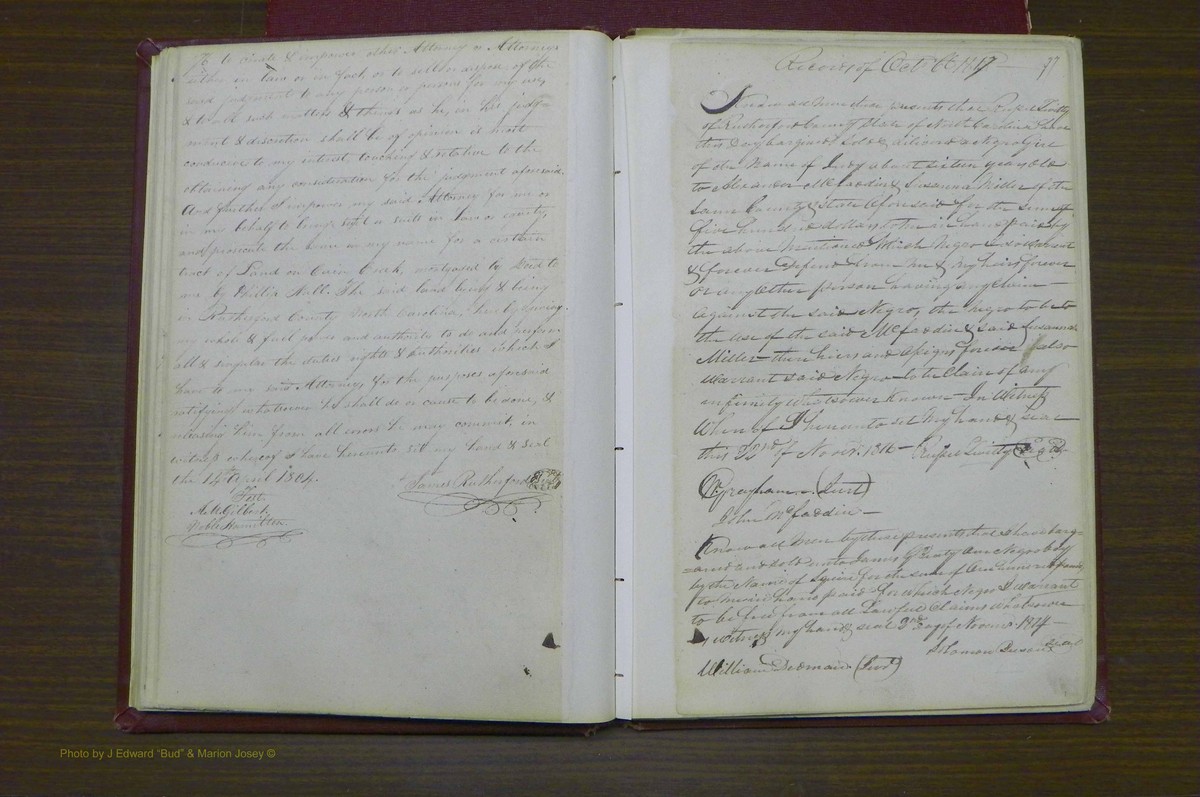 & to create & impower other Attorney or Attorneys
either in law or in fact, or to sell or dispose of the
said judgment to any person or persons for my use,
& to all such matters & things as he, in his judg-
ment & discretion shall be of opinion it most
conducive to my intrest touching & relative to the
obtaining any consideration for the judgment aforesaid.
And further I impower my said Attorney for me or
in my behalf to bring suit or suits in Law or equity,
and prosecute the same in my name for a certain
tract of Land on Cain Creek, mortgaged by Deed to
me by Hall. The said land lying & being
in Rutherford County North Carolina, hereby giving
my whole & full power and authority to do and perform
all & singular the duties rights & authorities which I
have to my said Attorney for the purposes aforesaid
ratifying whatsoever he shall do or cause to be done, &
releasing him from all errors he may commit, in
witness whereof I have hereunto set my hand & seal
the 14th April 1804.
James Rutherford
Test.
Gilbert
Noble Hamilton
Record of Oct 1817 77
Know all men these presents that Rufus
of Rutherford County State of North Carolina have
this Day bargained sold & delivered a Negro
of the Name of about sixteen years old
to Alexander McFaddin & Susanna Miller of the
same County & State aforesaid for the sum of
five hundred dollars to me in hand paid by
the above mentioned which Negro I do warrant
& forever defend from me & my heirs forever
or any other person having any claim
against the said Negro, the Negro to be to
the use of the said McFaddin & said Susanna
Miller their heirs and assigns forever I also
warrant said Negro to be Clair of any
infirmity whatsoever known In Witness
When of I hereunto set my hand & seal
this 22nd of Novr. 1816 Rufus
(Jurt)
John McFaddin
Know all Men by these presents that I have barg-
-ained and sold unto James One Negro boy
by the Name of for the sum of One hundred
to me in hand paid for which Negro I warrant
to be free from all Lawful Claims whatsoever
witness my hand & seal 2nd Day of Novmr. 1814
Solomon Seal
William Dedman (Jurt)
Photo by J Edward "Bud" & Marion Josey ©